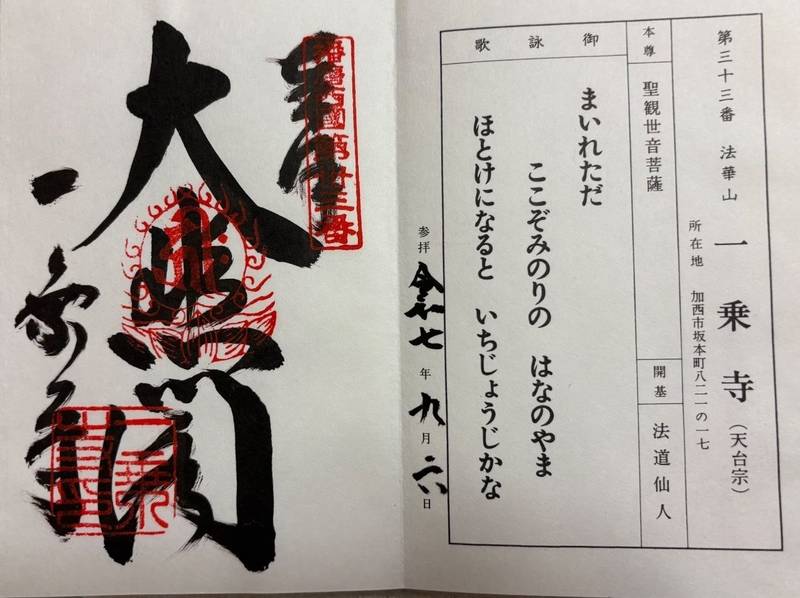 第三十三番 法華山 一乗寺(天台宗)
所在地 加西市坂本町八二一の一七
本尊 聖観世音菩薩
開基 法道仙人
御詠歌
まいれただ
ここぞみのりの はなのやま
ほとけになると いちじょうじかな
参拝 令和七年九月六日
奉拝
播磨西國第卅三番
大悲閣
一乗寺